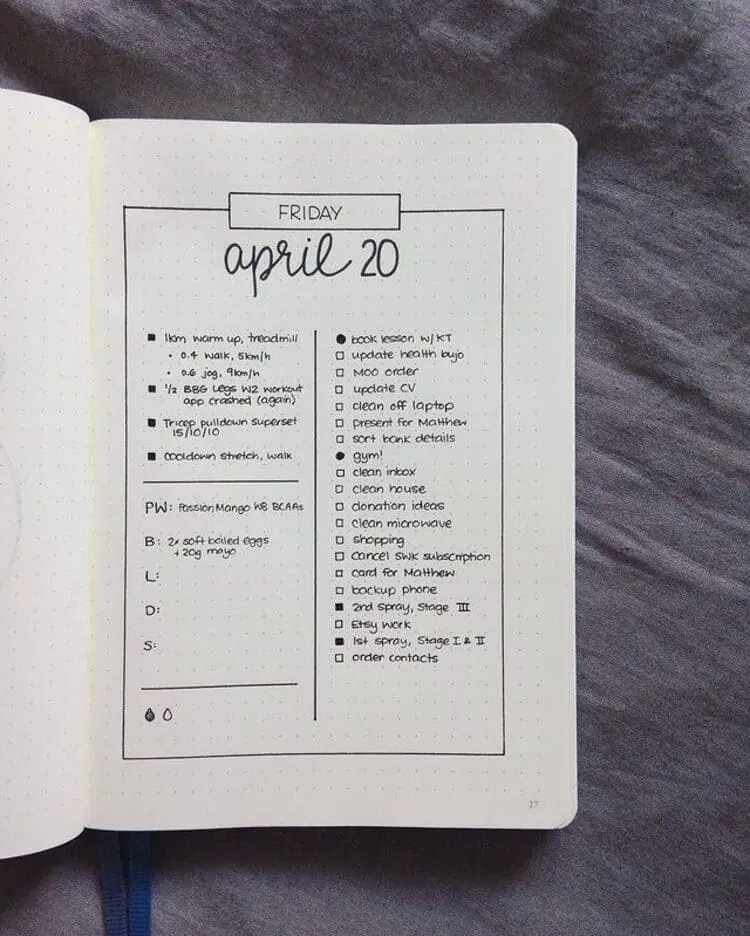 FRIDAY
april 20
1km warm up, treadmill
• 0.4 walk, 5km/h
• 0.6 jog, 9km/h
1/2 BBG Legs W2 workout
app crashed (again)
Tricep pulldown superset
15/10/10
cooldown stretch, walk
PW: Passion Mango WB BCAAs
B: 2x soft boiled eggs
+ 20g mayo
L:
D:
S:
book lesson w/ KT
update health bujo
MOO order
update CV
clean off laptop
present for Matthew
sort bank details
gym!
clean inbox
clean house
donation ideas
clean microwave
shopping
cancel SWK subscription
card for Matthew
backup phone
2nd spray, Stage III
Etsy work
1st spray, Stage I & II
order contacts
27